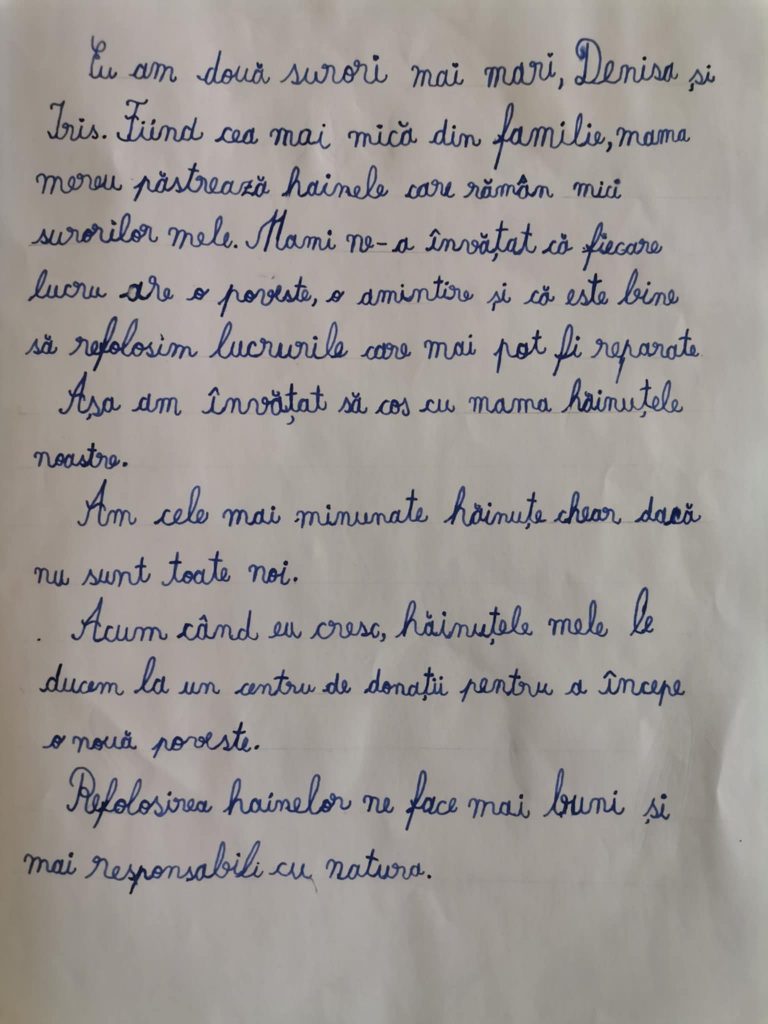 Eu am două surori mai mari, Denisa și
Iris. Fiind cea mai mică din familie, mama
mereu păstrează hainele care rămân mici
surorilor mele. Mami ne-a învățat că fiecare
lucru are o poveste, o amintire și că este bine
să refolosim lucrurile care mai pot fi reparate
Așa am învățat să cos cu mama hăinuțele
noastre.
Am cele mai minunate hăinuțe chear dacă
nu sunt toate noi.
Acum când eu cresc, hăinuțele mele le
ducem la un centru de donații pentru a începe
o nouă poveste.
Refolosirea hainelor ne face mai buni și
mai responsabili cu natura.